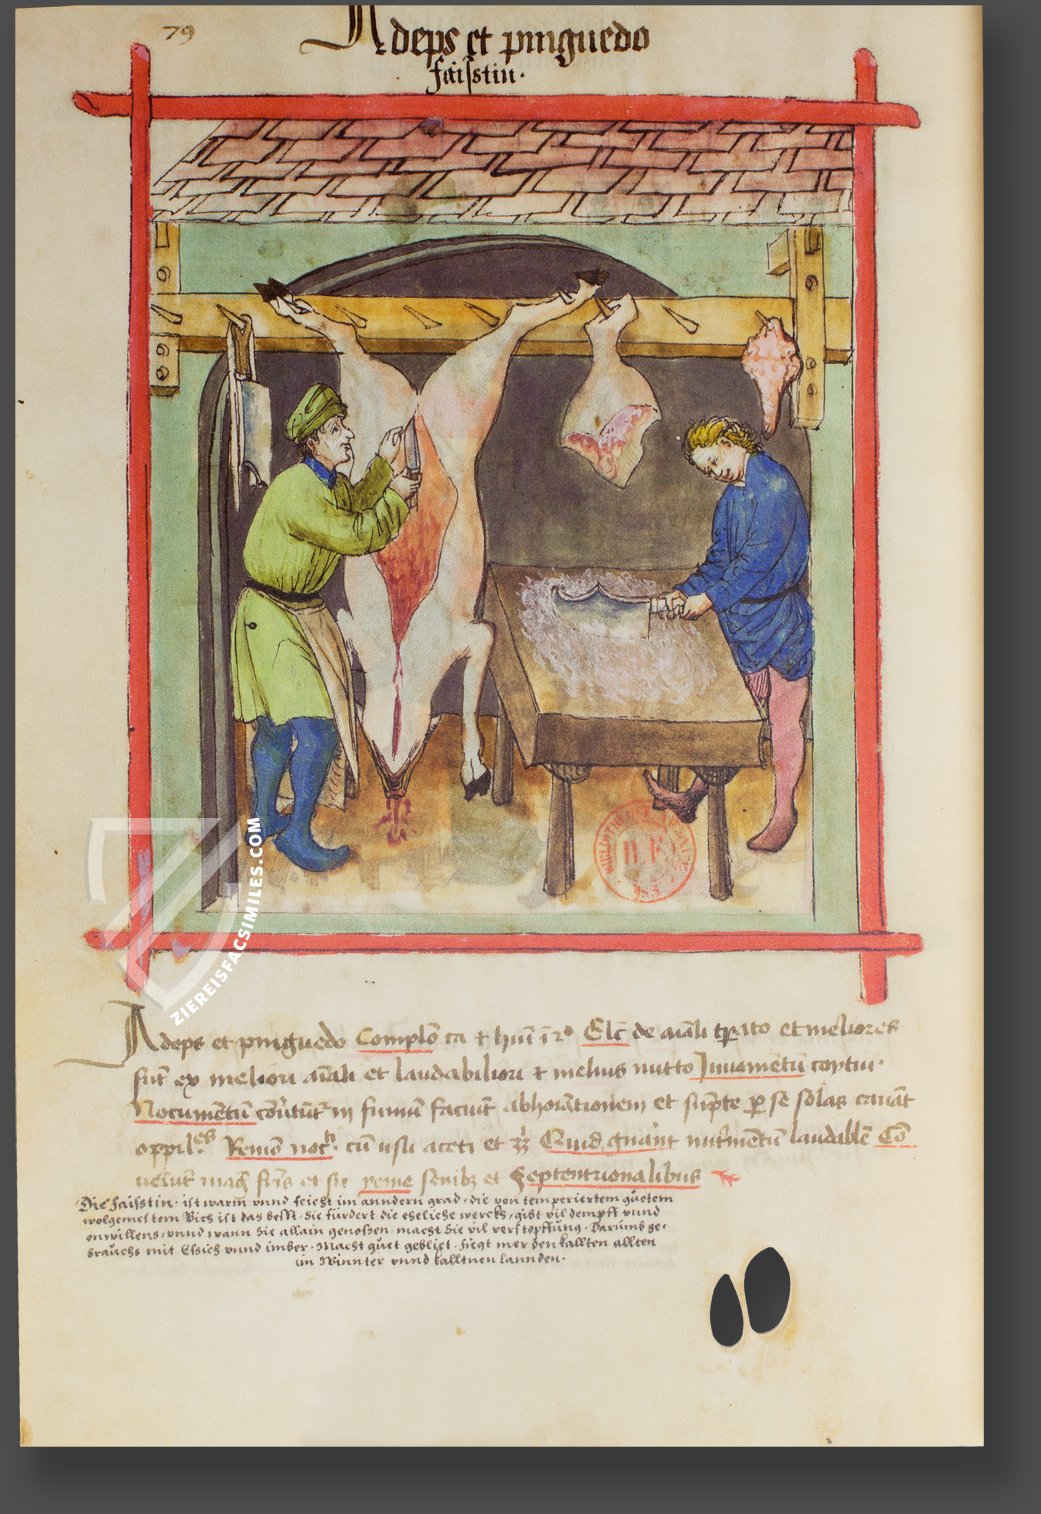 79
Adeps et pinguedo
faisstin.
Adeps et pinguedo Complō ca & hui ī 2° Elc̄ de aīali tꝑato et meliores
sūt ex meliori aīali et laudabiliori & melius nutto Juuamētū confut.
Nocumētū faciūt abhoīationem et sūpte ꝑ se solas
oppil. Remō noc. cū usu aceti et Quid gnānt nut'mētū laudable Cō
et senibꝫ et Septentrionalibus
Die faisstin. ist warm vnnd feicht im anndern grad. die von temperiertem guetem
wolgemestem Vich ist das besst. die fürdert die eheliche werckh, gibt vil dempff vnnd
vnwillens, vnnd wann Sie allain genossen, macht die vil verstopffung. Darumb ge-
brauchs mit Essich vnnd imber. Macht guet geblüt. fuegt mer den kallten allten
im Winnter vnnd kalltnen lannden.
ZIEREISFACSIMILES.COM